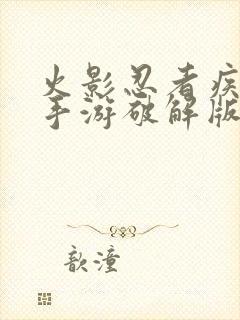 火影忍者疾
手游破解版
歆潼